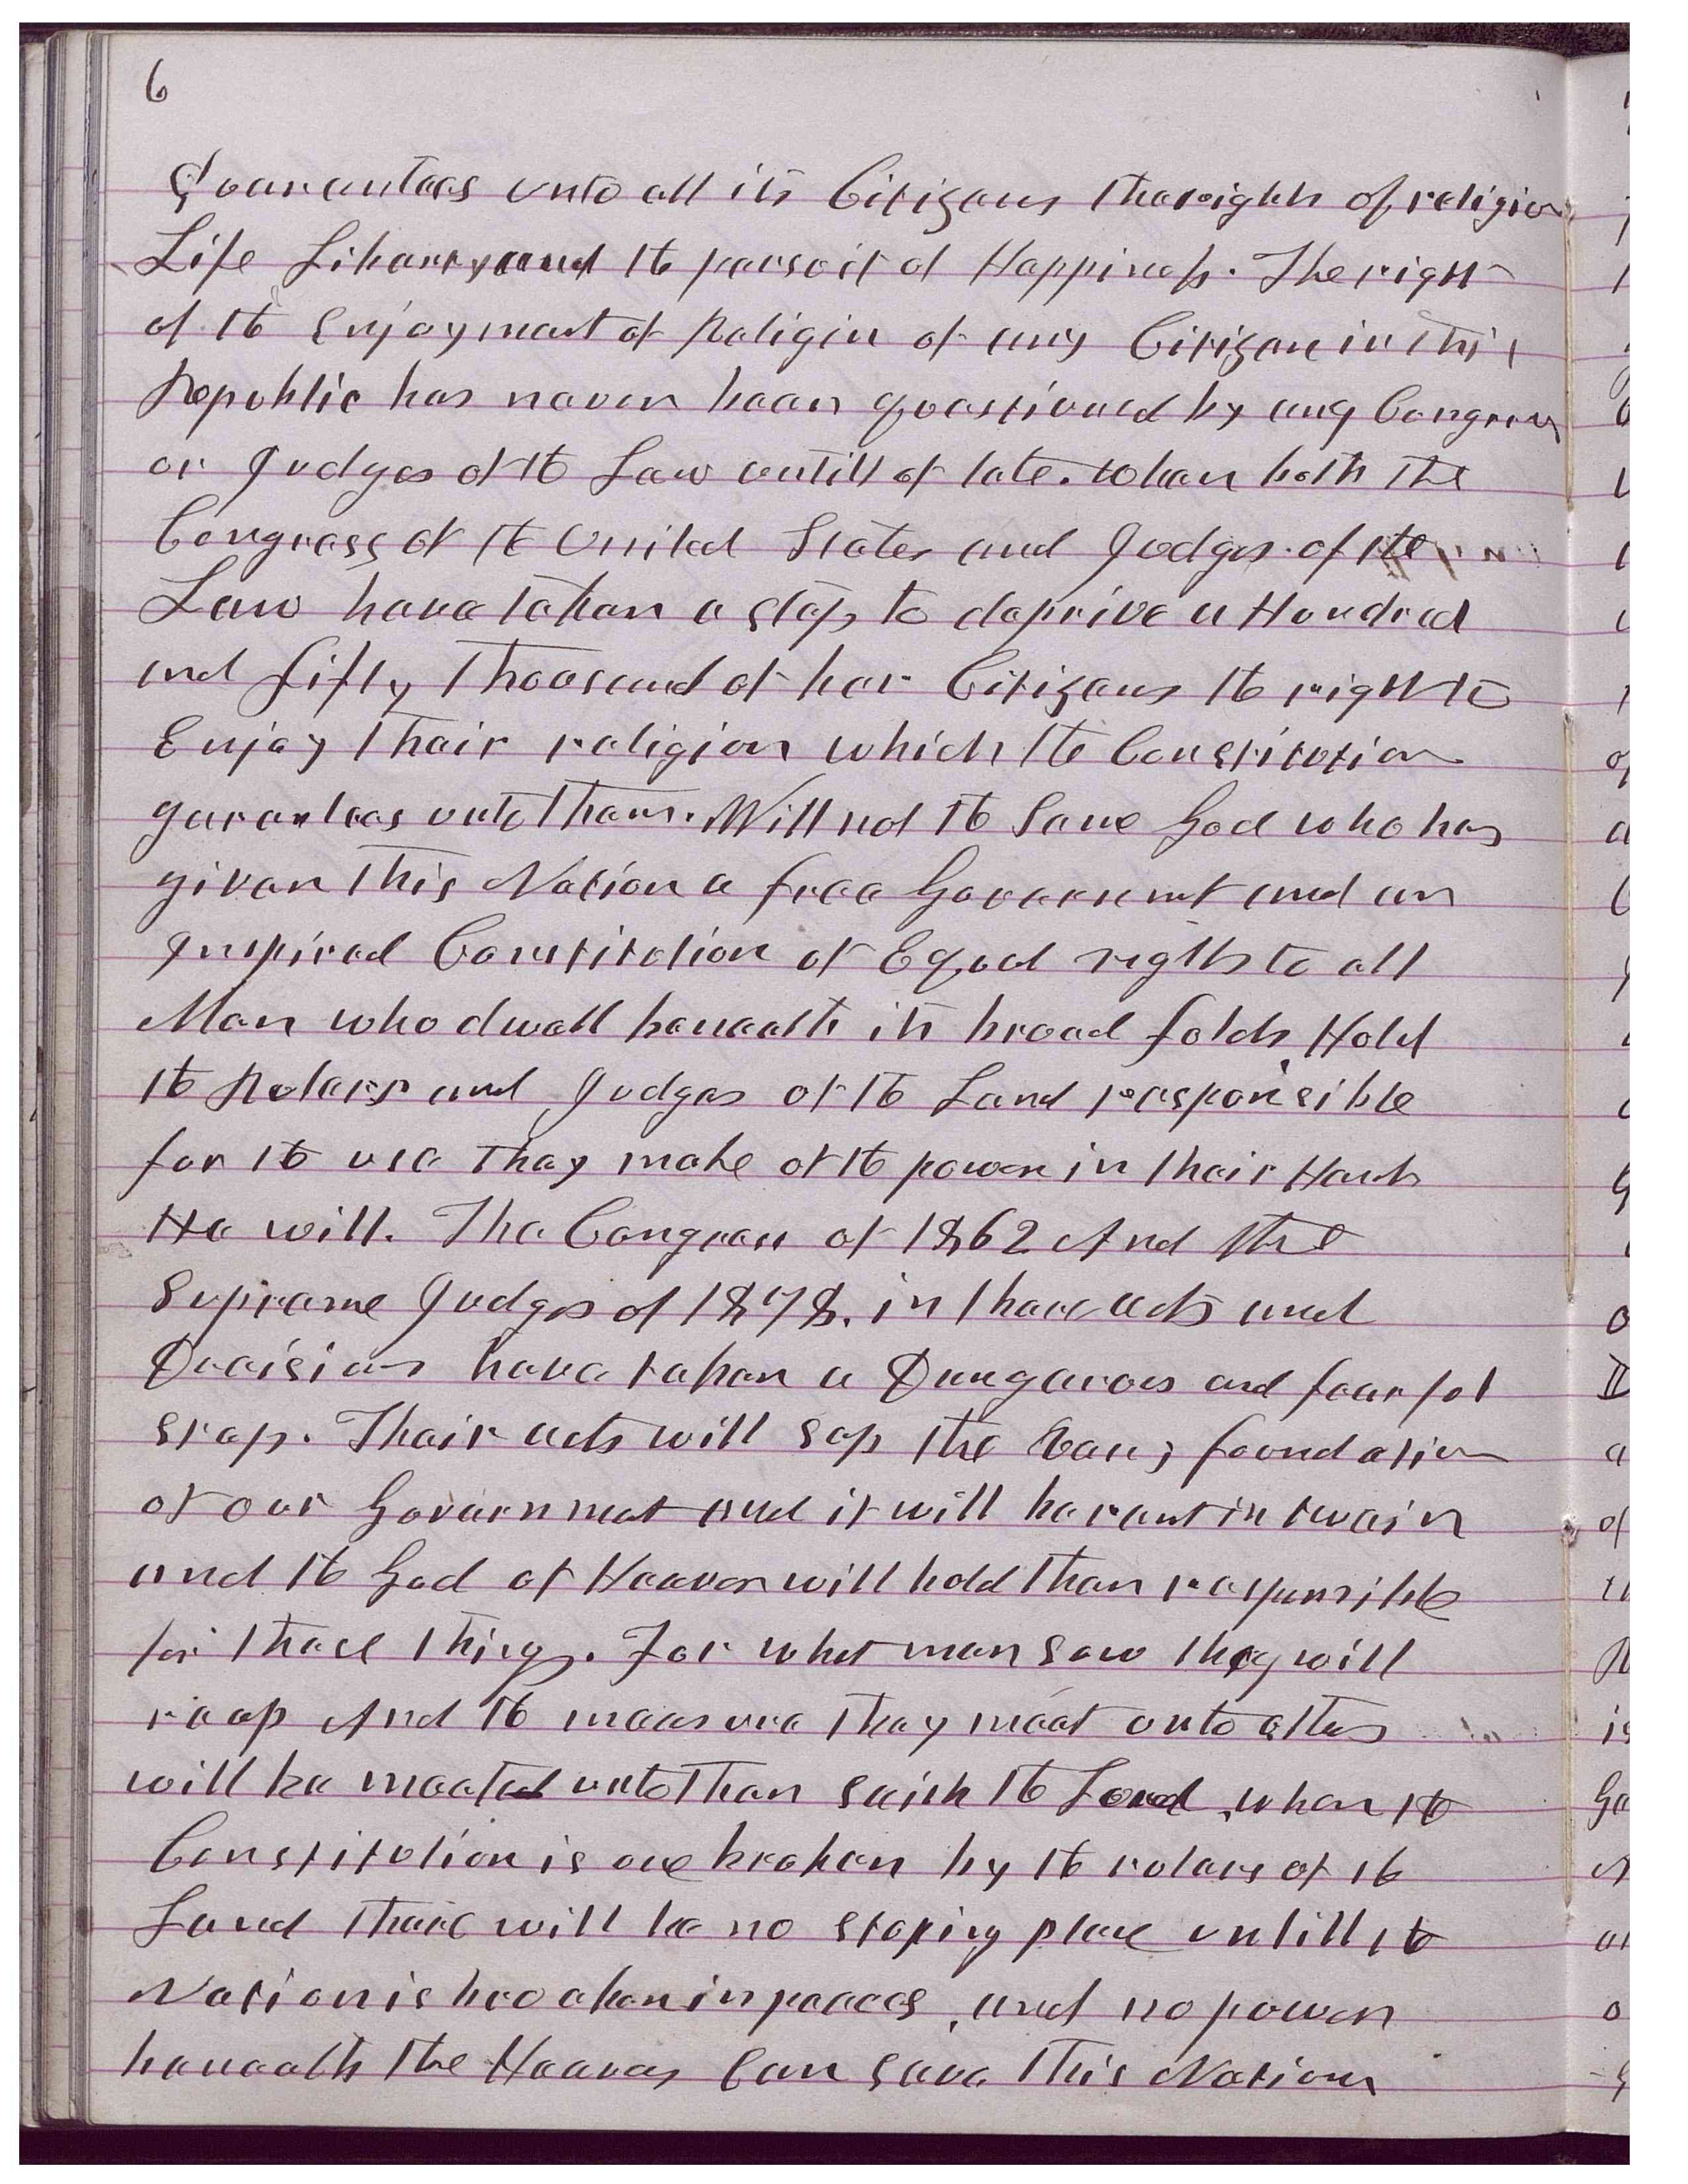 6
Guarantees unto all its Citizens the rights of religion
Life Liberty and the persuit of Happiness. The right
of the Enjoyment of Religin of any Citizen in this
Republic has never been questioned by any Congress
or Judges of the Law untill of late. when both the
Congress of the United States and Judges of the
Law have taken a step to deprive a Hundred
and fifty Thousand of her Citizens the right to
Enjoy their religion which the Constitution
garantees unto them. Will not the Same God who has
given this Nation a free Government and an
Inspired Constitution of Equal rigths to all
Men who dwell beneath its broad folds, Hold
the Rulers and Judges of the Land responsible
for the use they make of the power in their Hands
He will. The Congress of 1862 And the
Supreme Judges of 1878. in there acts and
Decisions have taken a Dangerous and fearful
step. Their acts will sap the very foundation
of our Government and it will be rent in twain
and the God of Heaven will hold them responsible
for these things. For what men sow they will
reap And the measure they meet unto others
will be meeted unto them saith the Lord, when the
Constitution is one broken by the rulers of the
Land there will be no stoping place untill the
Nation is broaken in peaces, and no power
beneath the Heavens Can save this Nation